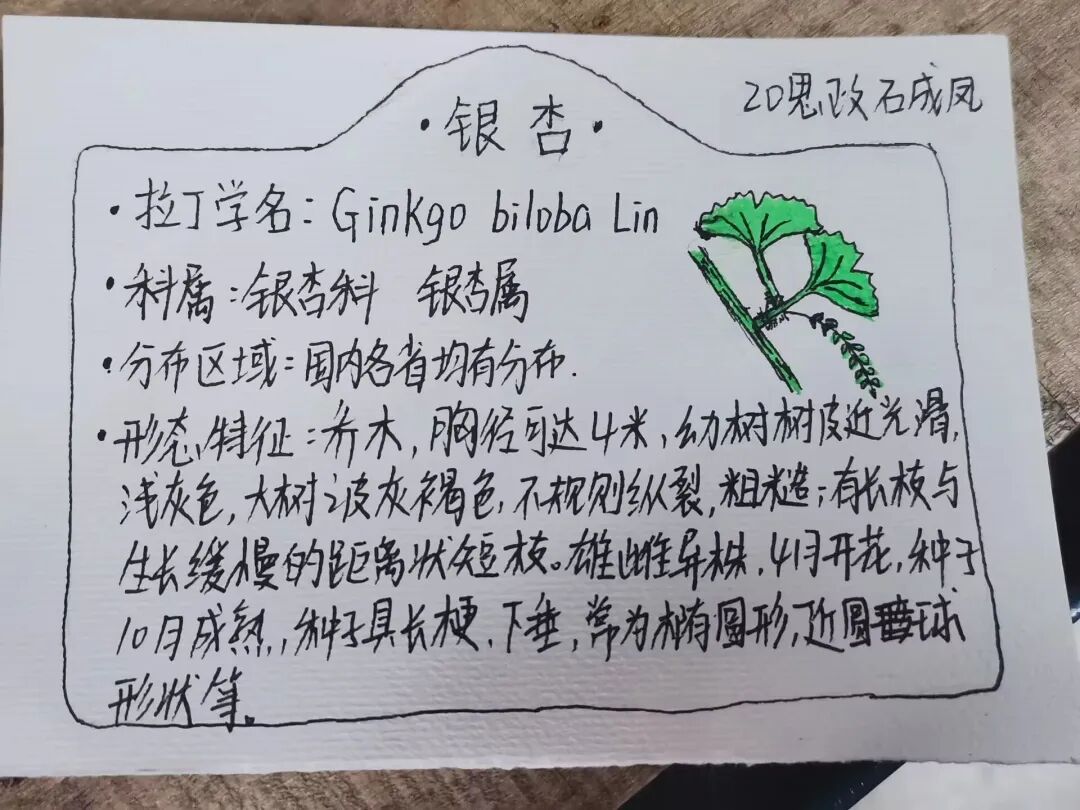 20思政石成凤
·银杏·
·拉丁学名：Ginkgo biloba Lin
·科属：银杏科 银杏属
·分布区域：国内各省均有分布.
·形态特征：乔木，胸径可达4米，幼树树皮近光滑，
浅灰色，大树之皮灰褐色，不规则纵裂，粗糙；有长枝与
生长缓慢的距离状短枝。雄雌异株，4月开花，种子
10月成熟，种子具长梗，下垂，常为椭圆形，近圆球
形状等。